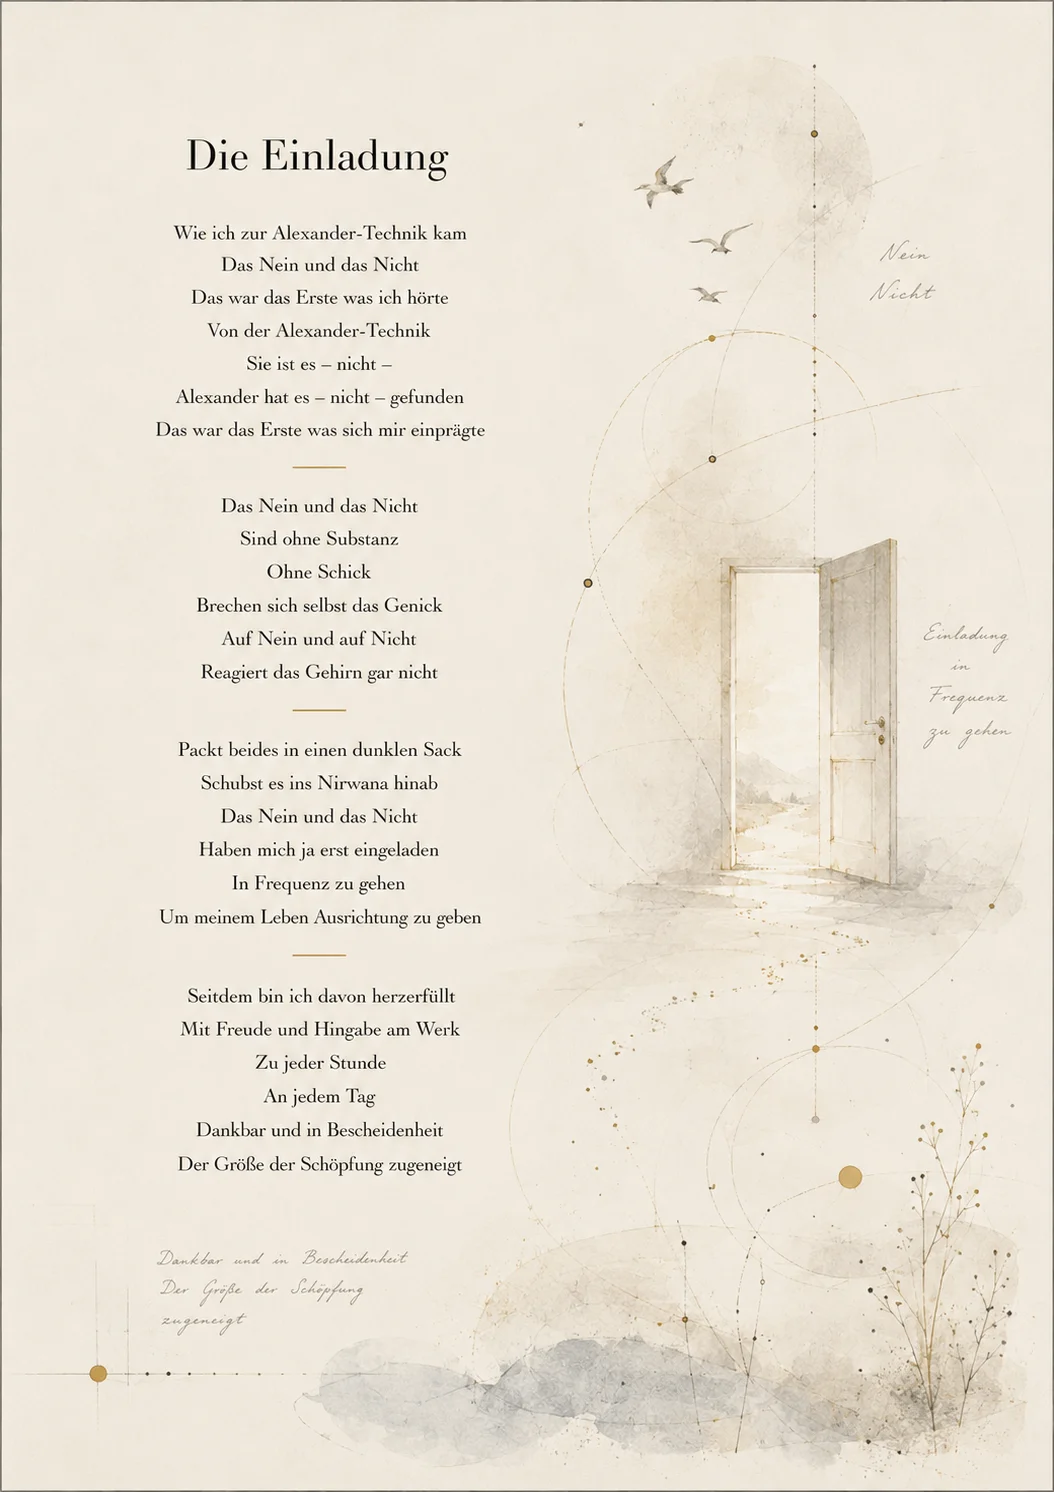 Die Einladung
Wie ich zur Alexander-Technik kam
Das Nein und das Nicht
Das war das Erste was ich hörte
Von der Alexander-Technik
Sie ist es – nicht –
Alexander hat es – nicht – gefunden
Das war das Erste was sich mir einprägte
Das Nein und das Nicht
Sind ohne Substanz
Ohne Schick
Brechen sich selbst das Genick
Auf Nein und auf Nicht
Reagiert das Gehirn gar nicht
Packt beides in einen dunklen Sack
Schubst es ins Nirwana hinab
Das Nein und das Nicht
Haben mich ja erst eingeladen
In Frequenz zu gehen
Um meinem Leben Ausrichtung zu geben
Seitdem bin ich davon herzerfüllt
Mit Freude und Hingabe am Werk
Zu jeder Stunde
An jedem Tag
Dankbar und in Bescheidenheit
Der Größe der Schöpfung zugeneigt
Dankbar und in Bescheidenheit
Der Größe der Schöpfung
zugeneigt
Nein
Nicht
Einladung
in
Frequenz
zu gehen